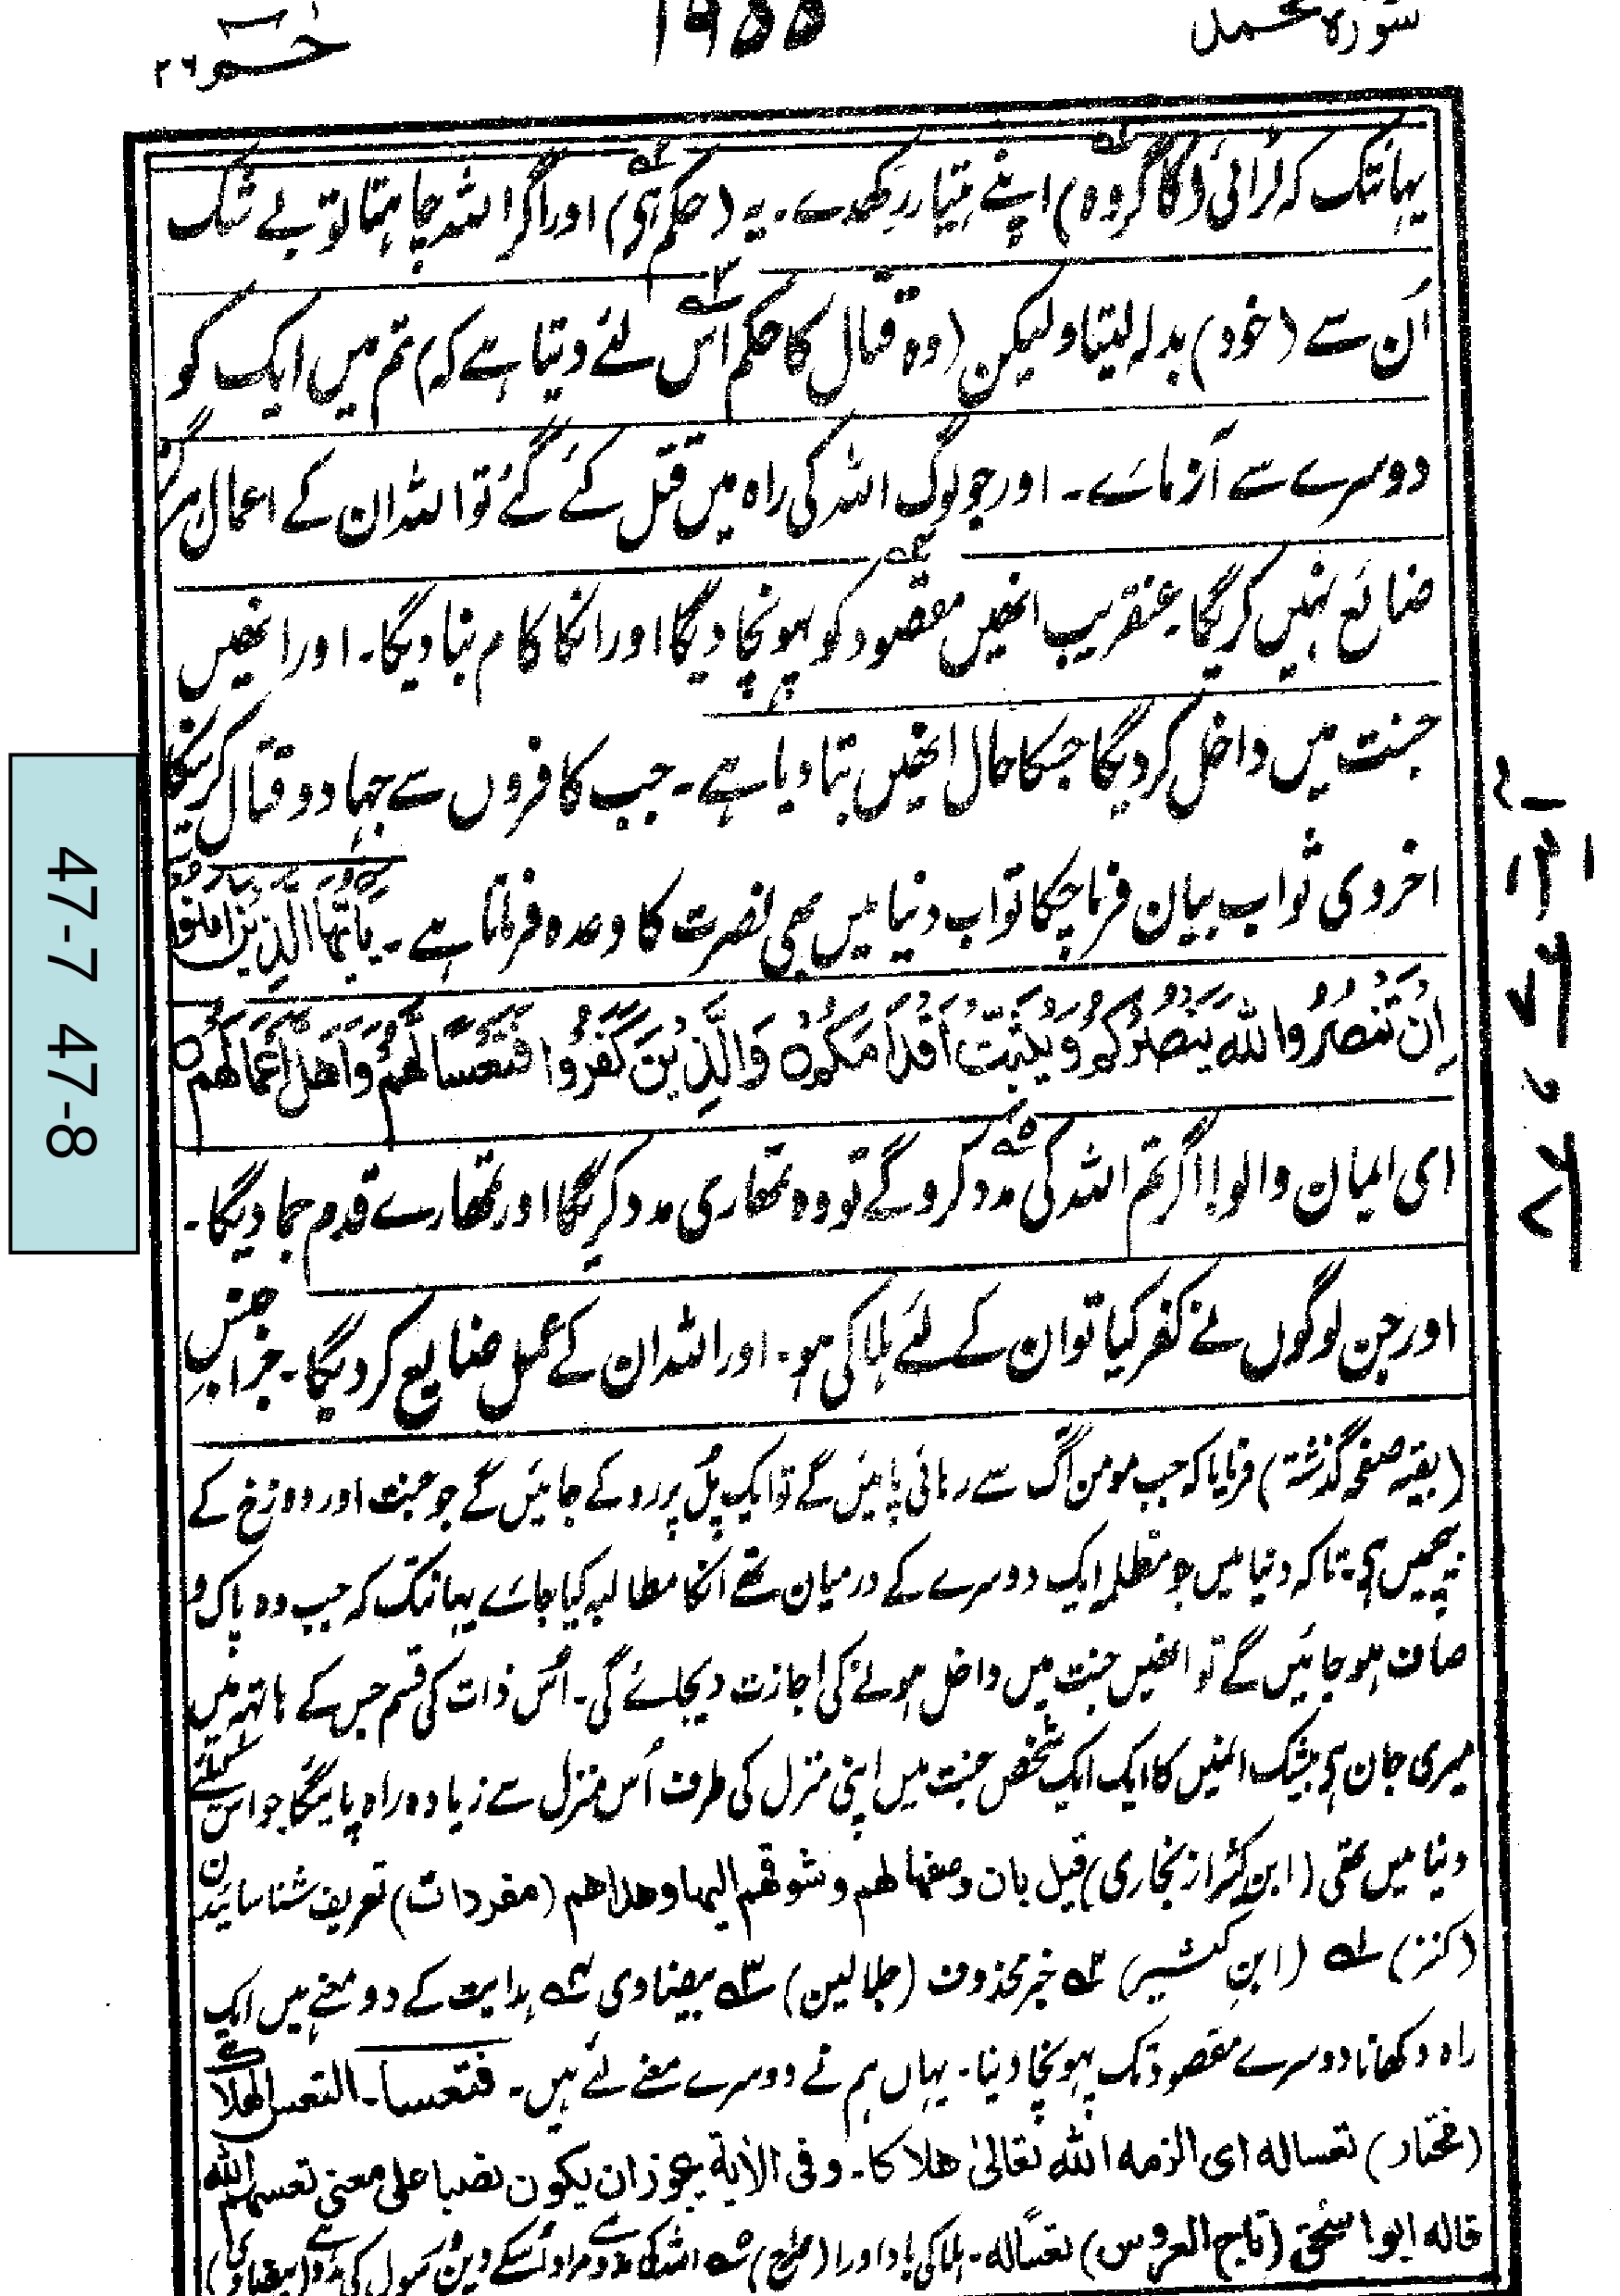 سورۃ محمد ١٩٥٥ حٰم ٢٦
یہانتک کہ لڑائی (کا گروہ) اپنے ہتیار رکھدے۔ یہ (حکم ہی) اور اگر اللہ چاہتا تو بے شک
اُن سے (خود) بدلہ لیتا ولیکن (وہ قتال کا حکم اس لئے دیتا ہے کہ) تم میں ایک کو
دوسرے سے آزمائے۔ اور جو لوگ اللہ کی راہ میں قتل کئے گئے تو اللہ ان کے اعمال ہرگز
ضایع نہیں کریگا۔ عنقریب انھیں مقصود کو پہونچا دیگا اور انکا کام بنا دیگا۔ اور انھیں
جنت میں داخل کردیگا جسکا حال انھیں بتا دیا ہے۔ جب کافروں سے جہاد و قتال کرنیکا
اخروی ثواب بیان فرما چکا تو اب دنیا میں بھی نصرت کا وعدہ فرماتا ہے۔ یٰۤاَیُّهَا الَّذِیْنَ اٰمَنُوْۤا
اِنْ تَنْصُرُوا اللّٰهَ یَنْصُرْكُمْ وَیُثَبِّتْ اَقْدَامَكُمْ ۝ وَالَّذِیْنَ كَفَرُوْا فَتَعْسًا لَّهُمْ وَاَضَلَّ اَعْمَالَهُمْ ۝
ای ایمان والو! اگر تم اللہ کی مدد کروگے تو وہ تمھاری مدد کریگا اور تمھارے قدم جما دیگا۔
اور جن لوگوں نے کفر کیا تو ان کے لئے ہلاکی ہو۔ اور اللہ ان کے عمل ضایع کردیگا۔ جزا بہ جنس
(بقیہ صفحہ گذشتہ) فرمایا کہ جب مومن آگ سے رہائی پائیں گے تو ایک پل پر روکے جائیں گے جو جنت اور دوزخ کے
بیچمیں ہی۔ تاکہ دنیا میں جو مظلمے ایک دوسرے کے درمیان تھے انکا مطالبہ کیا جائے یہانتک کہ جب وہ پاک و
صاف ہو جائیں گے تو انھیں جنت میں داخل ہونے کی اجازت دیجائے گی۔ اُس ذات کی قسم جس کے ہاتھ میں
میری جان ہی بیشک انمیں کا ایک ایک شخص جنت میں اپنی منزل کی طرف اُس منزل سے زیادہ راہ پائیگا جو اس کیلئے
دنیا میں تھی (ابن کثیر از بخاری) قیل بان وصفها لهم وشوقهم الیها وهداهم (مفردات) تعریف شناسانیدن
(کنز) ١ (ابن کثیر) ٢ خبر محذوف (جلالین) ٣ بیضاوی ٤ ہدایت کے دو معنے ہیں ایک
راہ دکھانا دوسرے مقصود تک پہونچا دینا۔ یہاں ہم نے دوسرے معنے لئے ہیں۔ فتعسا۔ التعس الهلاك
(مختار) تعسا له ای الزمه الله تعالیٰ هلاكا۔ وفی الآیة یجوز ان یكون نصبا علی معنی تعسهم الله
قاله ابو اسحٰق (تاج العروس) تعسًا له۔ ہلاکی باد اورا (صراح) ٥ اللہ کی مدد سے مراد اُسکے دین و رسول کی مدد ہے (بیضاوی)
47-7 47-8
٤٧-٧ و ٤٧-٨